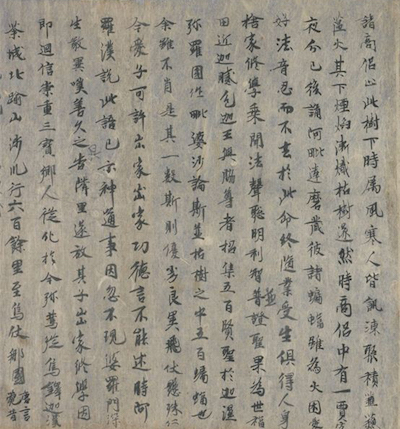 諸商侶止此樹下時属風寒人皆飢凍聚積樵蘇
蘊火其下煙焰漸熾枯樹遂然時商侶中有一賈客
夜分已後誦阿毗達磨藏彼諸蝙蝠雖為火困愛
好法音忍而不去於此命終隨業受生俱得人身
捨家修學乘聞法聲聰明利智並普證聖果為世福
田近迦膩色迦王與脇尊者招集五百賢聖於迦濕
弥羅國作毗婆沙論斯並枯樹之中五百蝙蝠也
余雖不肖是其一數斯則優劣良異飛伏懸殊仁
今愛子可許出家出家功德言不能述時阿
羅漢說此語已示神通事因忽不現婆羅門深
生敬異嘆善久之具告隣里遂放其子出家修學因
即迴信崇重三寶鄉人從化於今弥篤從烏鐸迦漢
荼城北踰山涉川行六百餘里至烏仗那國唐言